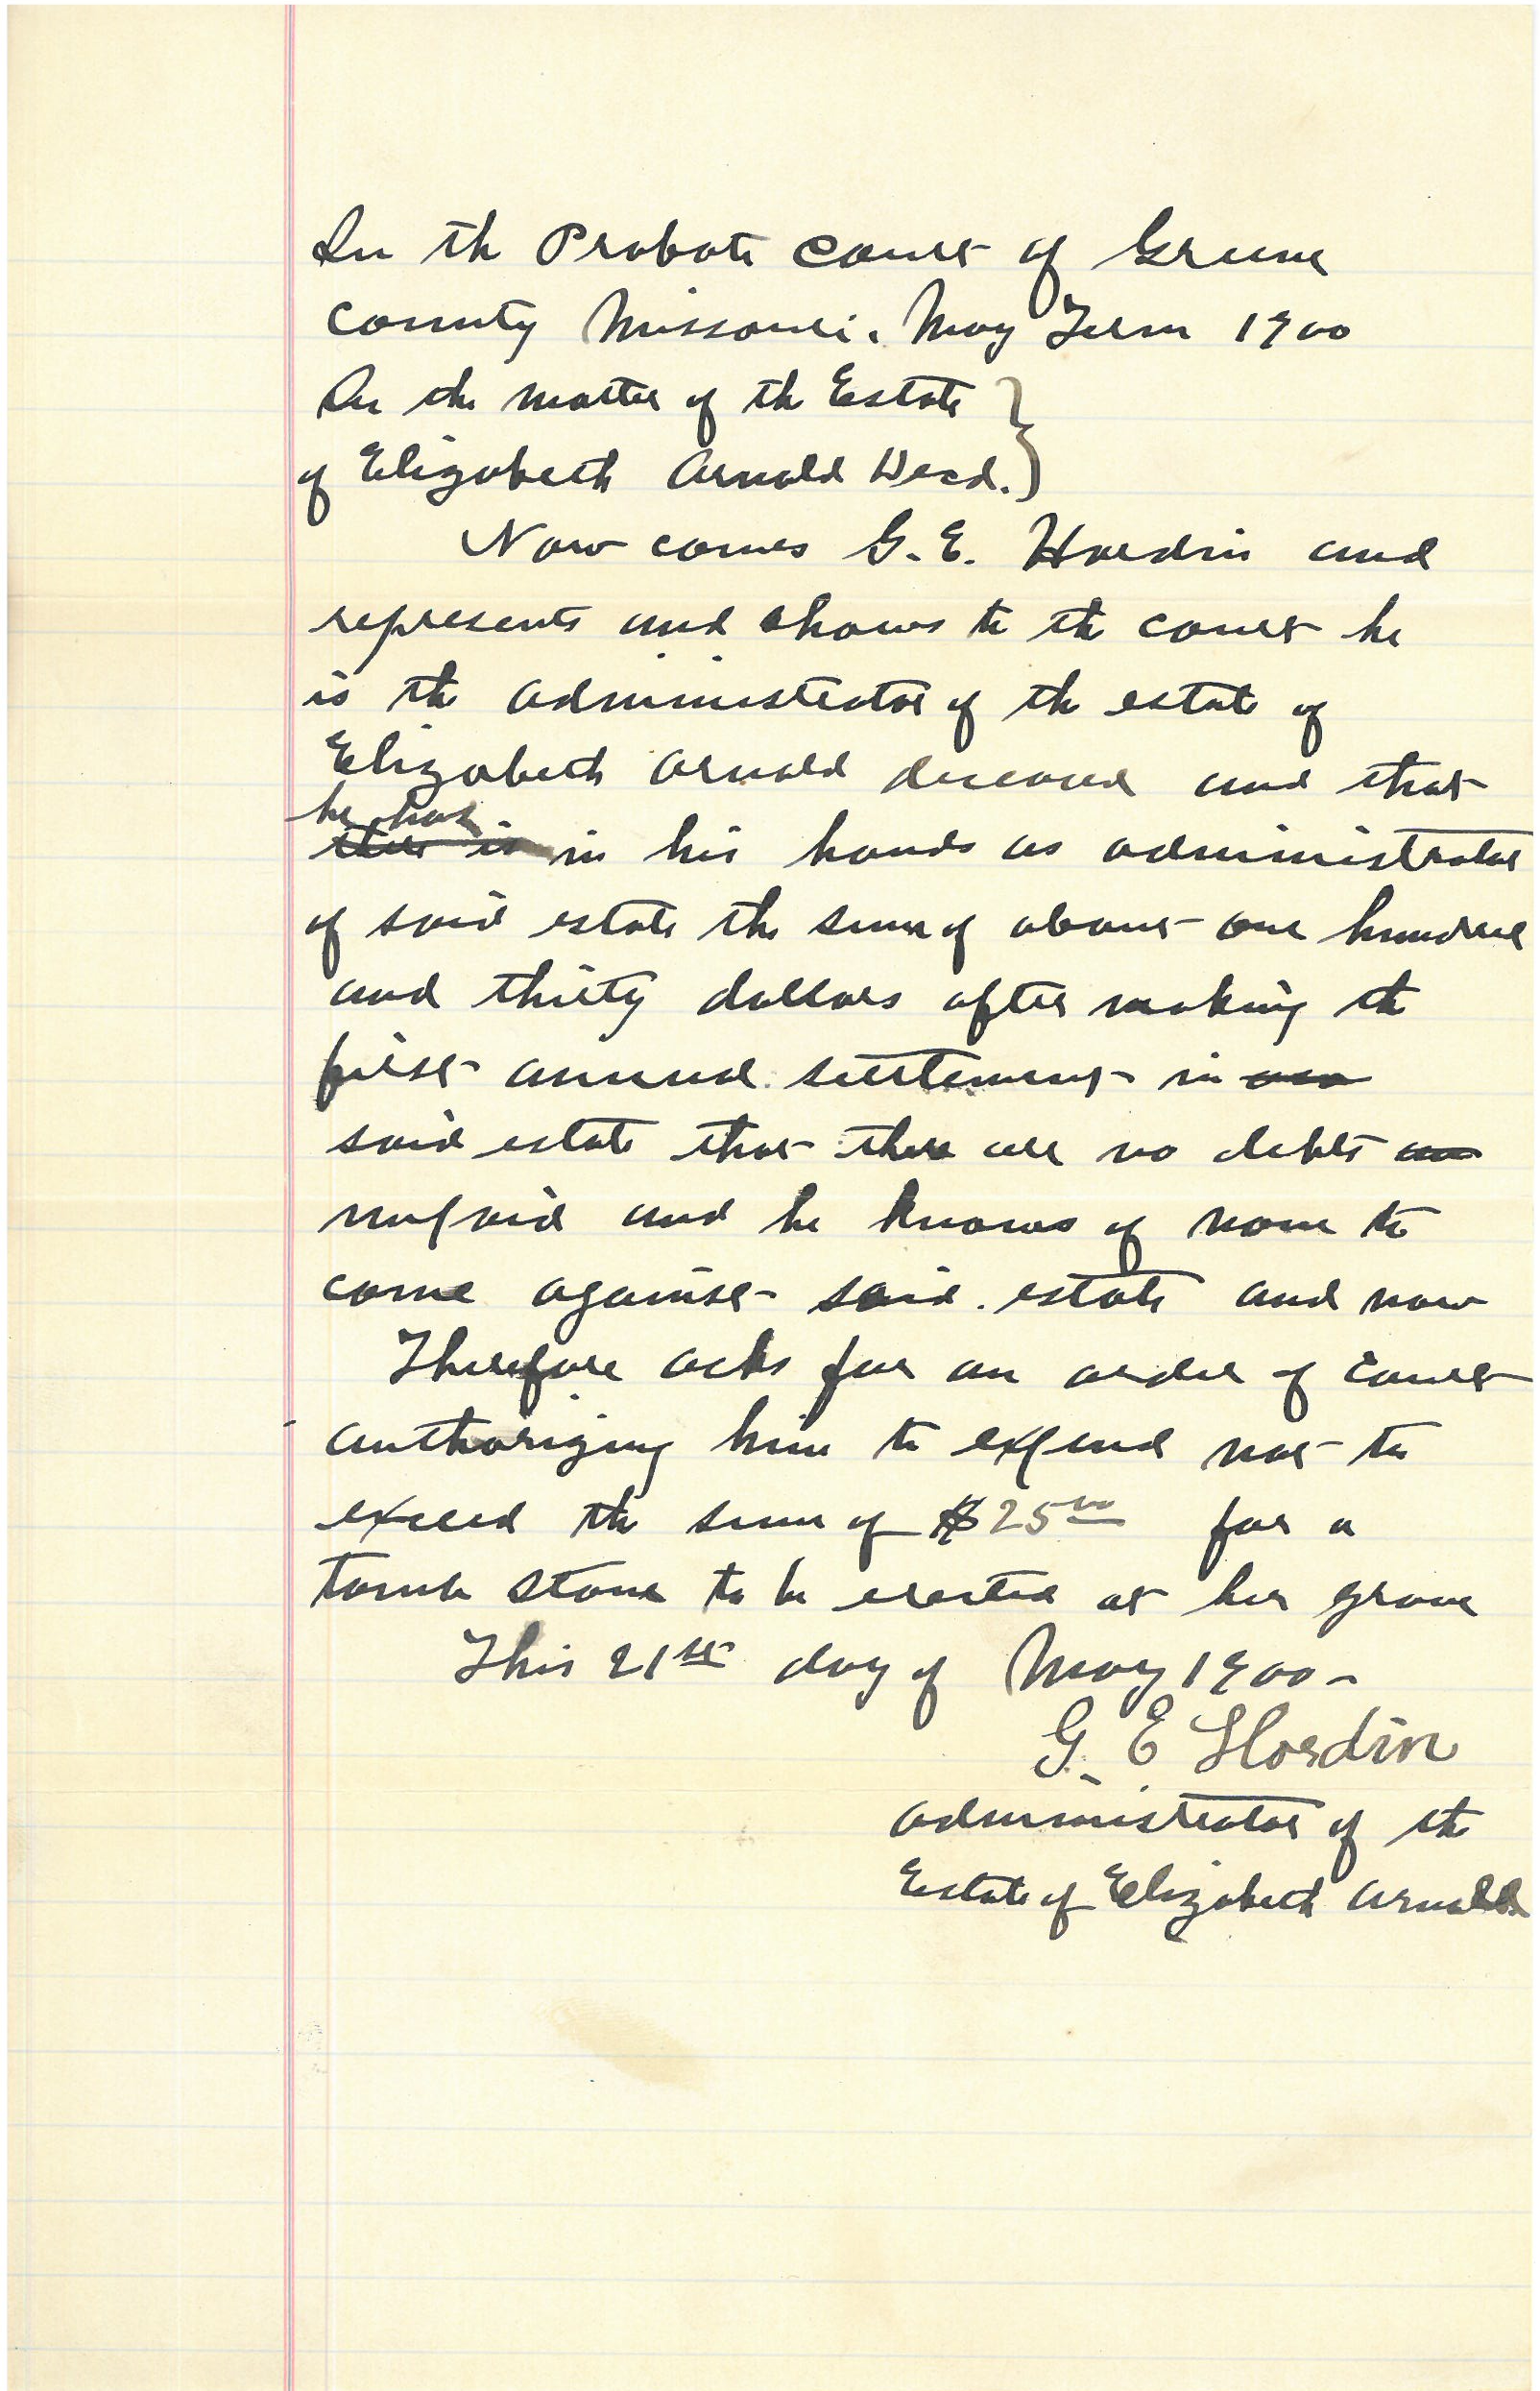 In the Probate Court of Greene
County Missouri. May Term 1900
In the matter of the Estate
of Elizabeth Arnold Decd.
Now comes G. E. Hardin and
represents and shows to the court he
is the administrator of the estate of
Elizabeth Arnold deceased and that
he has
there is in his hands as administrator
of said estate the sum of about one hundred
and thirty dollars after making the
first annual settlement in
said estate that there are no debts
unpaid and he knows of none to
come against said estate and now
Therefore asks for an order of court
authorizing him to expend not to
exceed the sum of $25.00 for a
tomb stone to be erected at her grave
This 21st day of May 1900-
G. E Hardin
administrator of the
Estate of Elizabeth Arnold